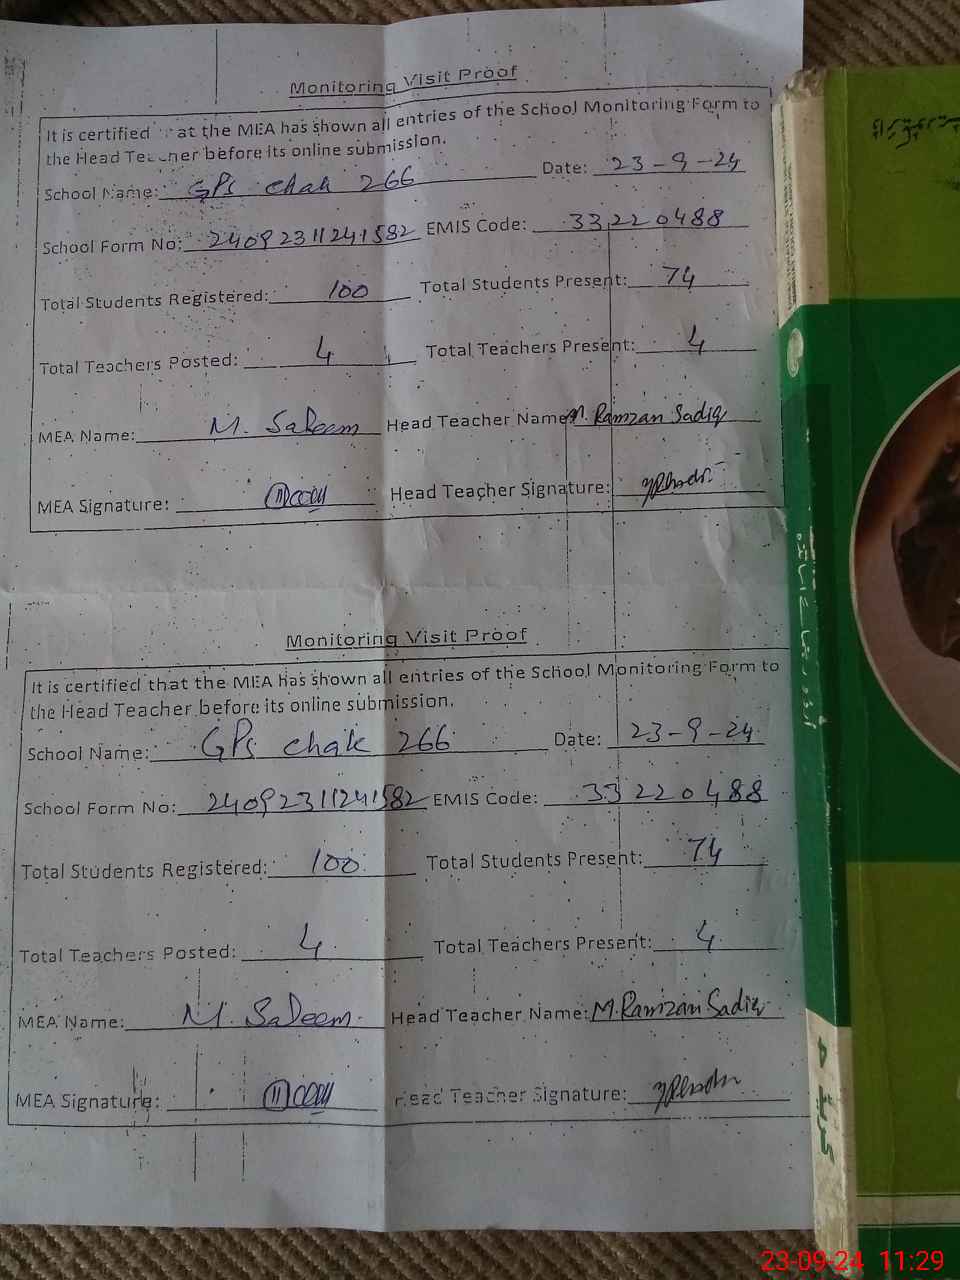 Monitoring Visit Proof
It is certified at the MEA has shown all entries of the School Monitoring Form to
the Head Teacher before its online submission.
School Name: GPs chak 266 Date: 23-9-24
School Form No: 24092311241582 EMIS Code: 33220488
Total Students Registered: 100 Total Students Present: 74
Total Teachers Posted: 4 Total Teachers Present: 4
MEA Name: M. Saleem Head Teacher Name: M. Ramzan Sadiq
MEA Signature: Head Teacher Signature:
Monitoring Visit Proof
It is certified that the MEA has shown all entries of the School Monitoring Form to
the Head Teacher before its online submission.
School Name: GPs chak 266 Date: 23-9-24
School Form No: 24092311241582 EMIS Code: 33220488
Total Students Registered: 100 Total Students Present: 74
Total Teachers Posted: 4 Total Teachers Present: 4
MEA Name: M. Saleem Head Teacher Name: M. Ramzan Sadiq
MEA Signature: Head Teacher Signature:
اُردو رہنمائے اساتذہ
گریڈ ۴
23-09-24 11:29